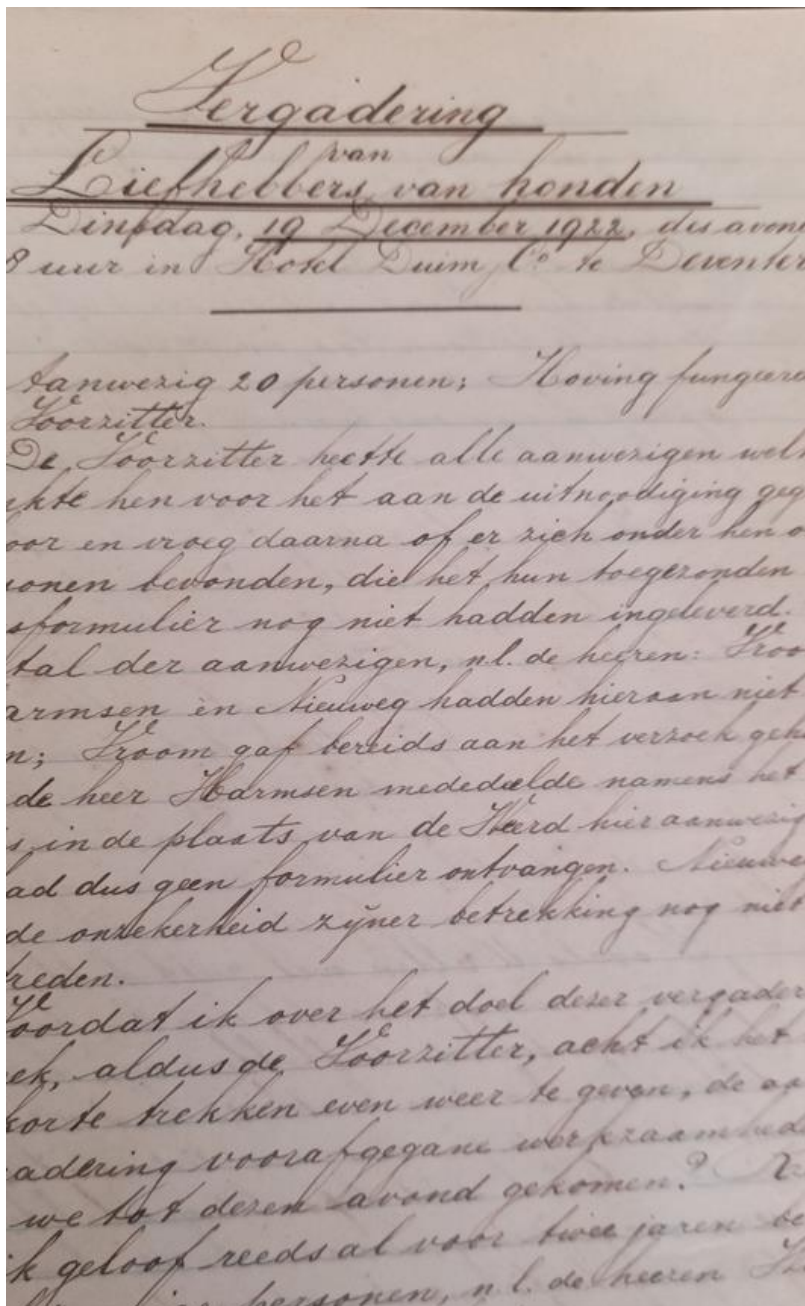 Vergadering
van
Liefhebbers van honden
Dinsdag, 19 December 1922, des avon
8 uur in Hotel Duim, Co. te Deventer
Aanwezig 20 personen; Hoving fungeere
Voorzitter.
De Voorzitter heette alle aanwezigen wel
kte hen voor het aan de uitnoodiging geg
oor en vroeg daarna of er zich onder hen o
sonen bevonden, die het hun toegezonden
sformulier nog niet hadden ingeleverd.
tal der aanwezigen, n.l. de heeren: Vroo
armsen en Nieuweg hadden hieraan niet
n; Vroom gaf bereids aan het verzoek geh
de heer Harmsen mededeelde namens het
s in de plaats van de Weerd hier aanwezig
ad dus geen formulier ontvangen. Nieuwe
de onzekerheid zijner betrekking nog niet
reden.
Voordat ik over het doel dezer vergader
ek, aldus de Voorzitter, acht ik het
korte trekken even weer te geven, de aa
adering voorafgegane werkzaamhed
we tot dezen avond gekomen?
k geloof reeds al voor twee jaren be
personen, n.l. de heeren